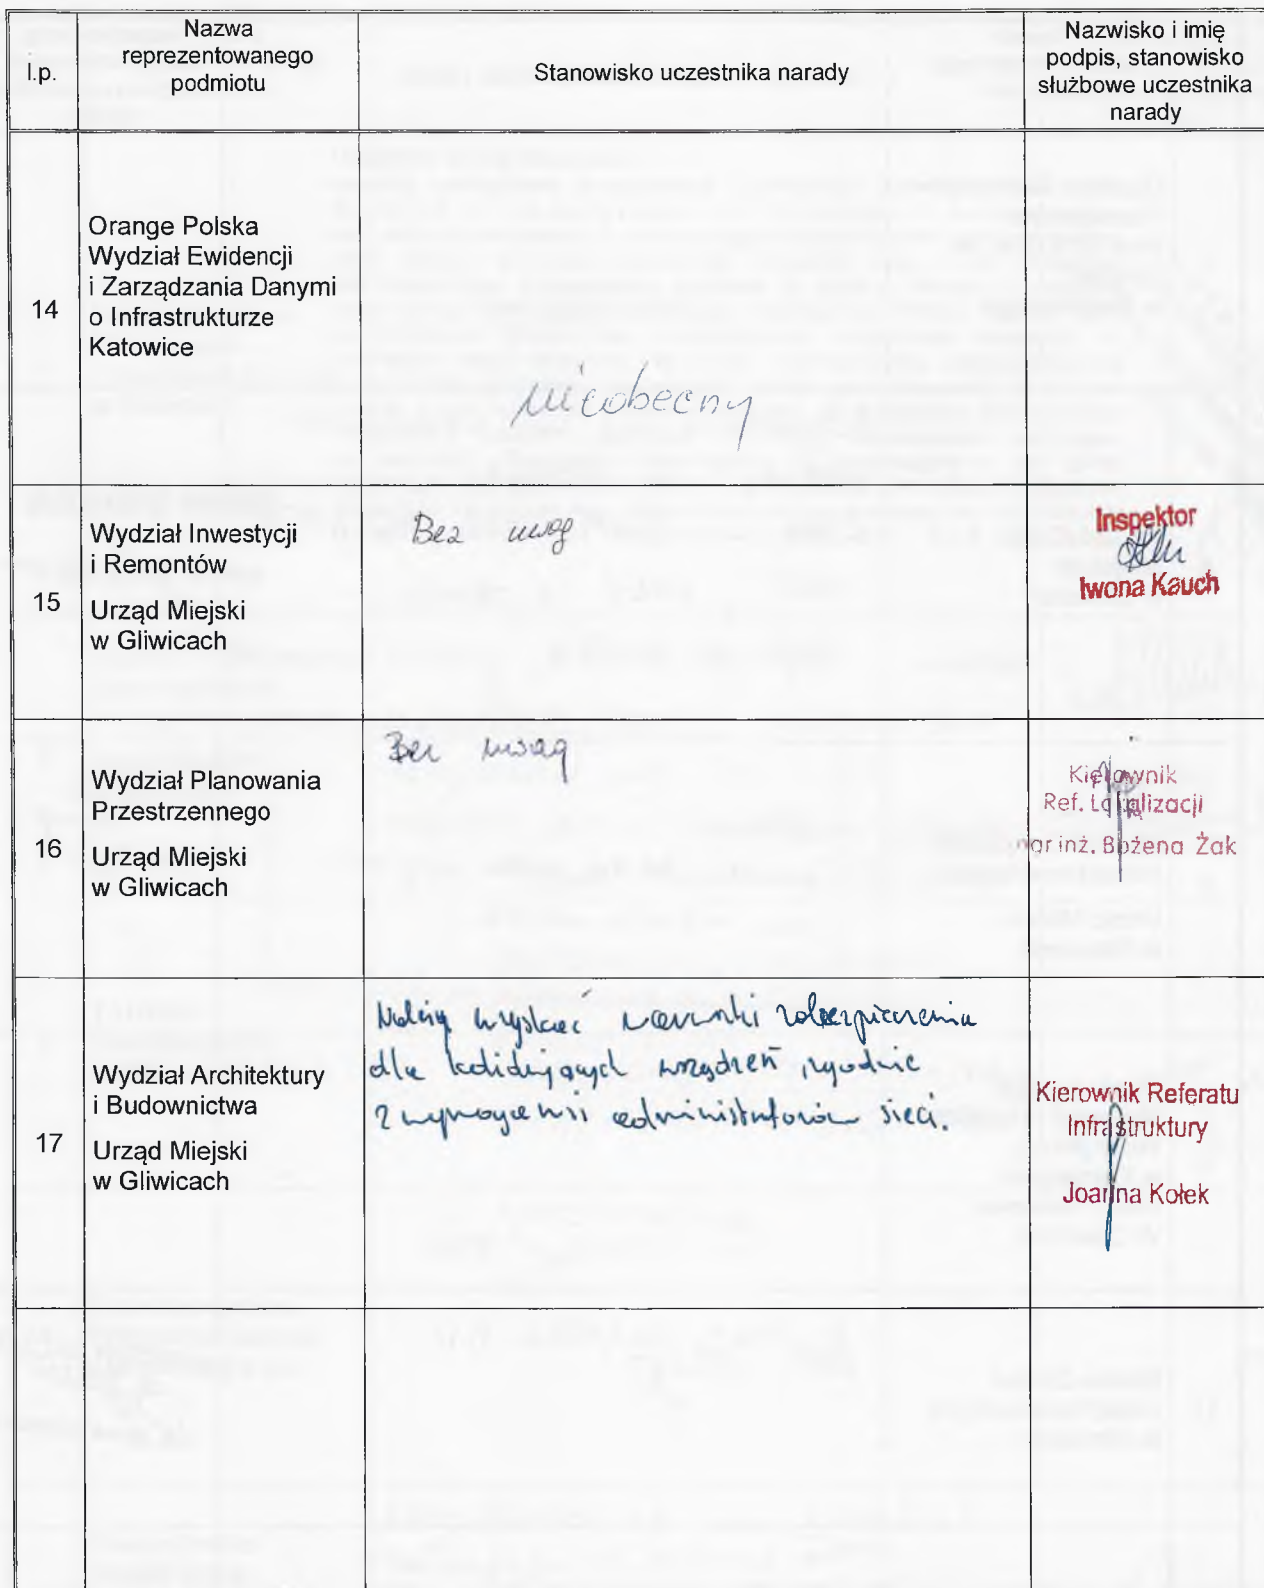 l.p.
Nazwa
reprezentowanego
podmiotu
Stanowisko uczestnika narady
Nazwisko i imię
podpis, stanowisko
służbowe uczestnika
narady
14
Orange Polska
Wydział Ewidencji
i Zarządzania Danymi
o Infrastrukturze
Katowice
nieobecny
15
Wydział Inwestycji
i Remontów
Urząd Miejski
w Gliwicach
Bez uwag
Inspektor
Iwona Kauch
16
Wydział Planowania
Przestrzennego
Urząd Miejski
w Gliwicach
Bez uwag
Kierownik
Ref. Lokalizacji
mgr inż. Bożena Żak
17
Wydział Architektury
i Budownictwa
Urząd Miejski
w Gliwicach
Należy uzyskać warunki zabezpieczenia
dla kolidujących urządzeń zgodnie
z wymogami administratorów sieci.
Kierownik Referatu
Infrastruktury
Joanna Kołek